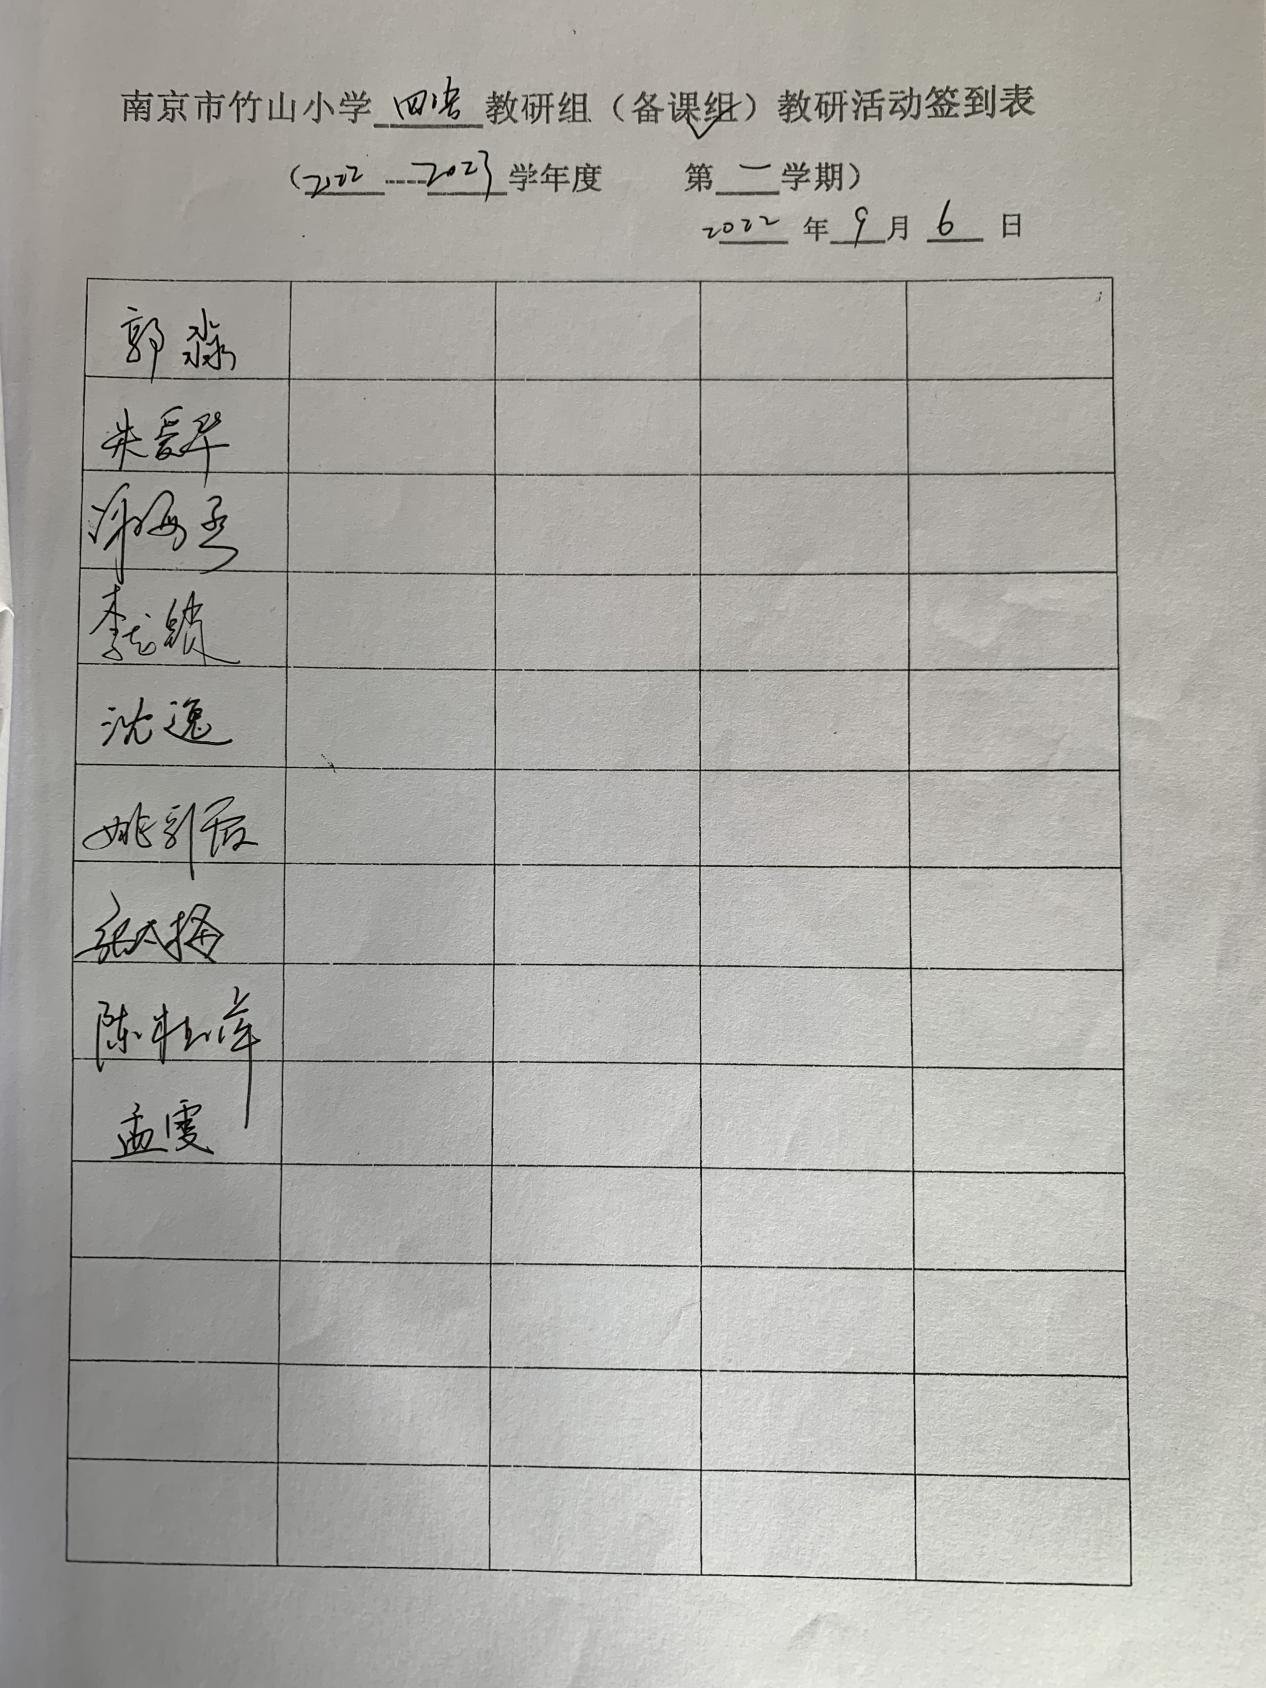 南京市竹山小学四语教研组（备课组）教研活动签到表
（2022----2023学年度 第一学期）
2022年9月6日
郭淼
朱爱华
李龙锁
沈逸
陈桂萍
孟雯